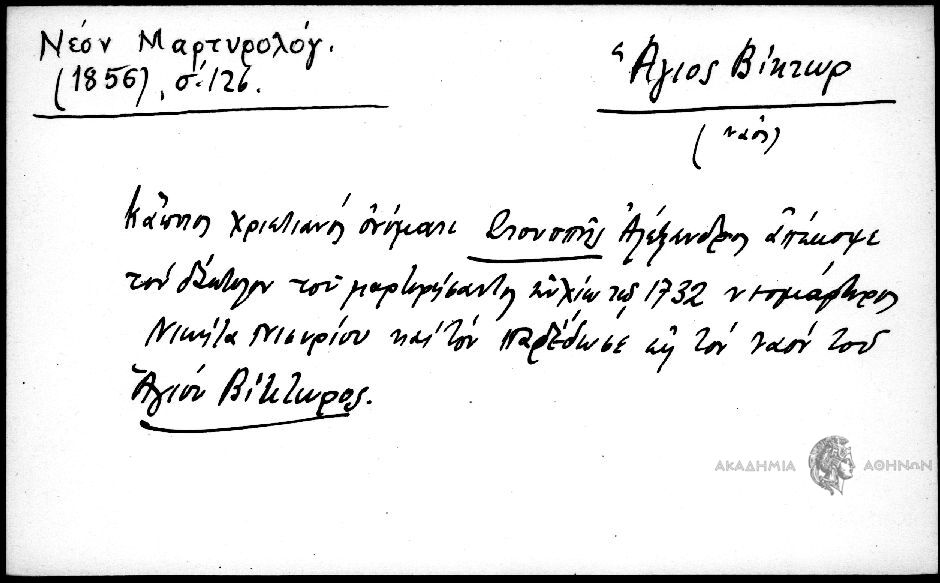 Νέον Μαρτυρολόγ.
(1856), σ. 126.
Ἅγιος Βίκτωρ
(ναός)
Κάποιος χριστιανός ὀνόματι Στουπῆς Ἀλέξανδρος ἀπέκοψε
τόν δάκτυλον τοῦ μαρτυρήσαντος ἐν Χίῳ τῷ 1732 νεομάρτυρος
Νικήτα Νισυρίου καί τόν παρέδωσε εἰς τόν ναόν τοῦ
Ἁγίου Βίκτωρος.
ΑΚΑΔΗΜΙΑ ΑΘΗΝΩΝ